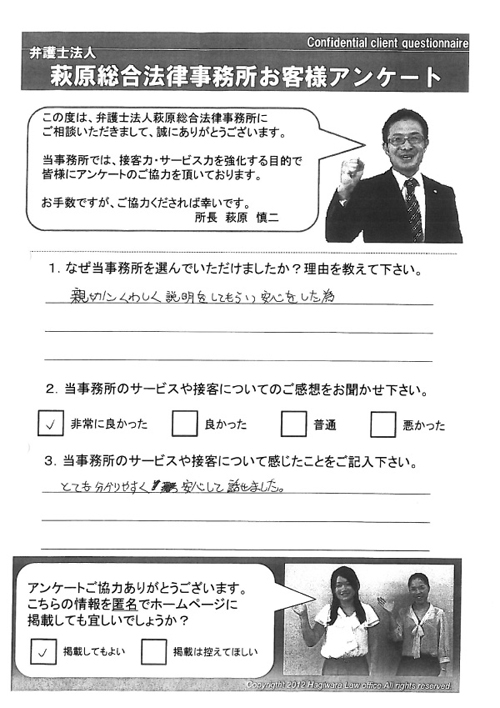 Confidential client questionnaire
弁護士法人
萩原総合法律事務所お客様アンケート
この度は、弁護士法人萩原総合法律事務所に
ご相談いただきまして、誠にありがとうございます。
当事務所では、接客力・サービス力を強化する目的で
皆様にアンケートのご協力を頂いております。
お手数ですが、ご協力くだされば幸いです。
所長 萩原 慎二
1. なぜ当事務所を選んでいただけましたか？理由を教えて下さい。
親切にくわしく説明をしてもらい安心をした為
2. 当事務所のサービスや接客についてのご感想をお聞かせ下さい。
✓ 非常に良かった 良かった 普通 悪かった
3. 当事務所のサービスや接客について感じたことをご記入下さい。
とても分かりやすく 安心して話せました。
アンケートご協力ありがとうございます。
こちらの情報を匿名でホームページに
掲載しても宜しいでしょうか？
✓ 掲載してもよい 掲載は控えてほしい
Copyright 2012 Hagiwara Law office All rights reserved.